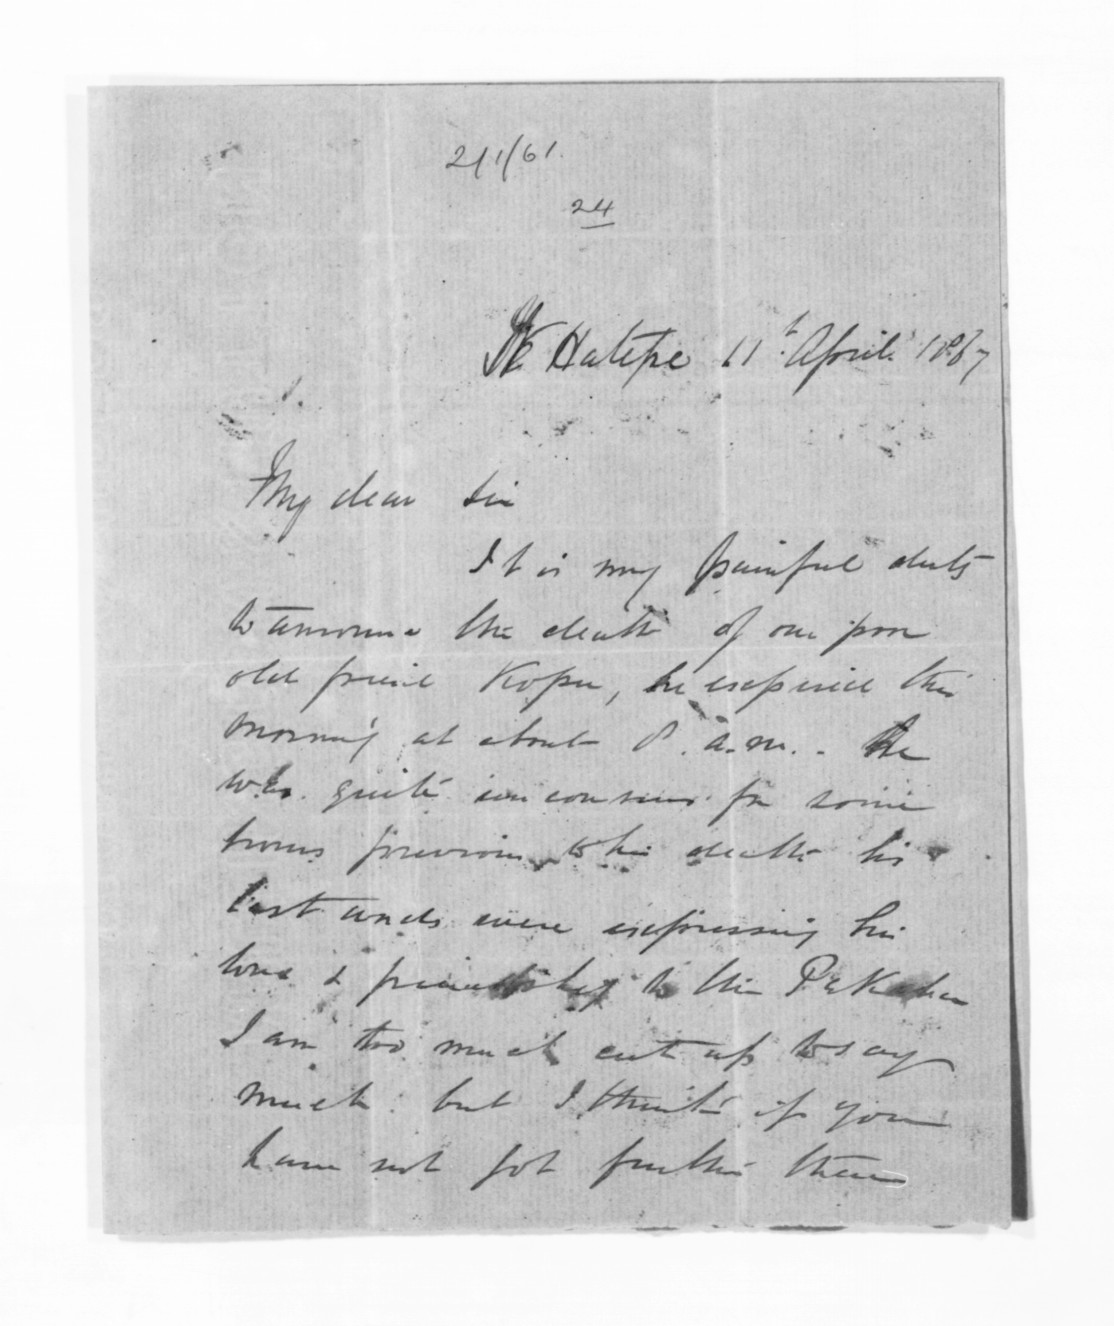 2/1/61.
24
Te Hatepe 11th April 1867
My dear Sir
It is my painful duty
to announce the death of our poor
old friend Kopu, he expired this
morning at about 8. a.m. - He
was quite unconscious for some
hours previous to his death his
last words were expressing his
love & friendship to the Pakeha
I am too much cut up to say
much but I think if you
have not got further than